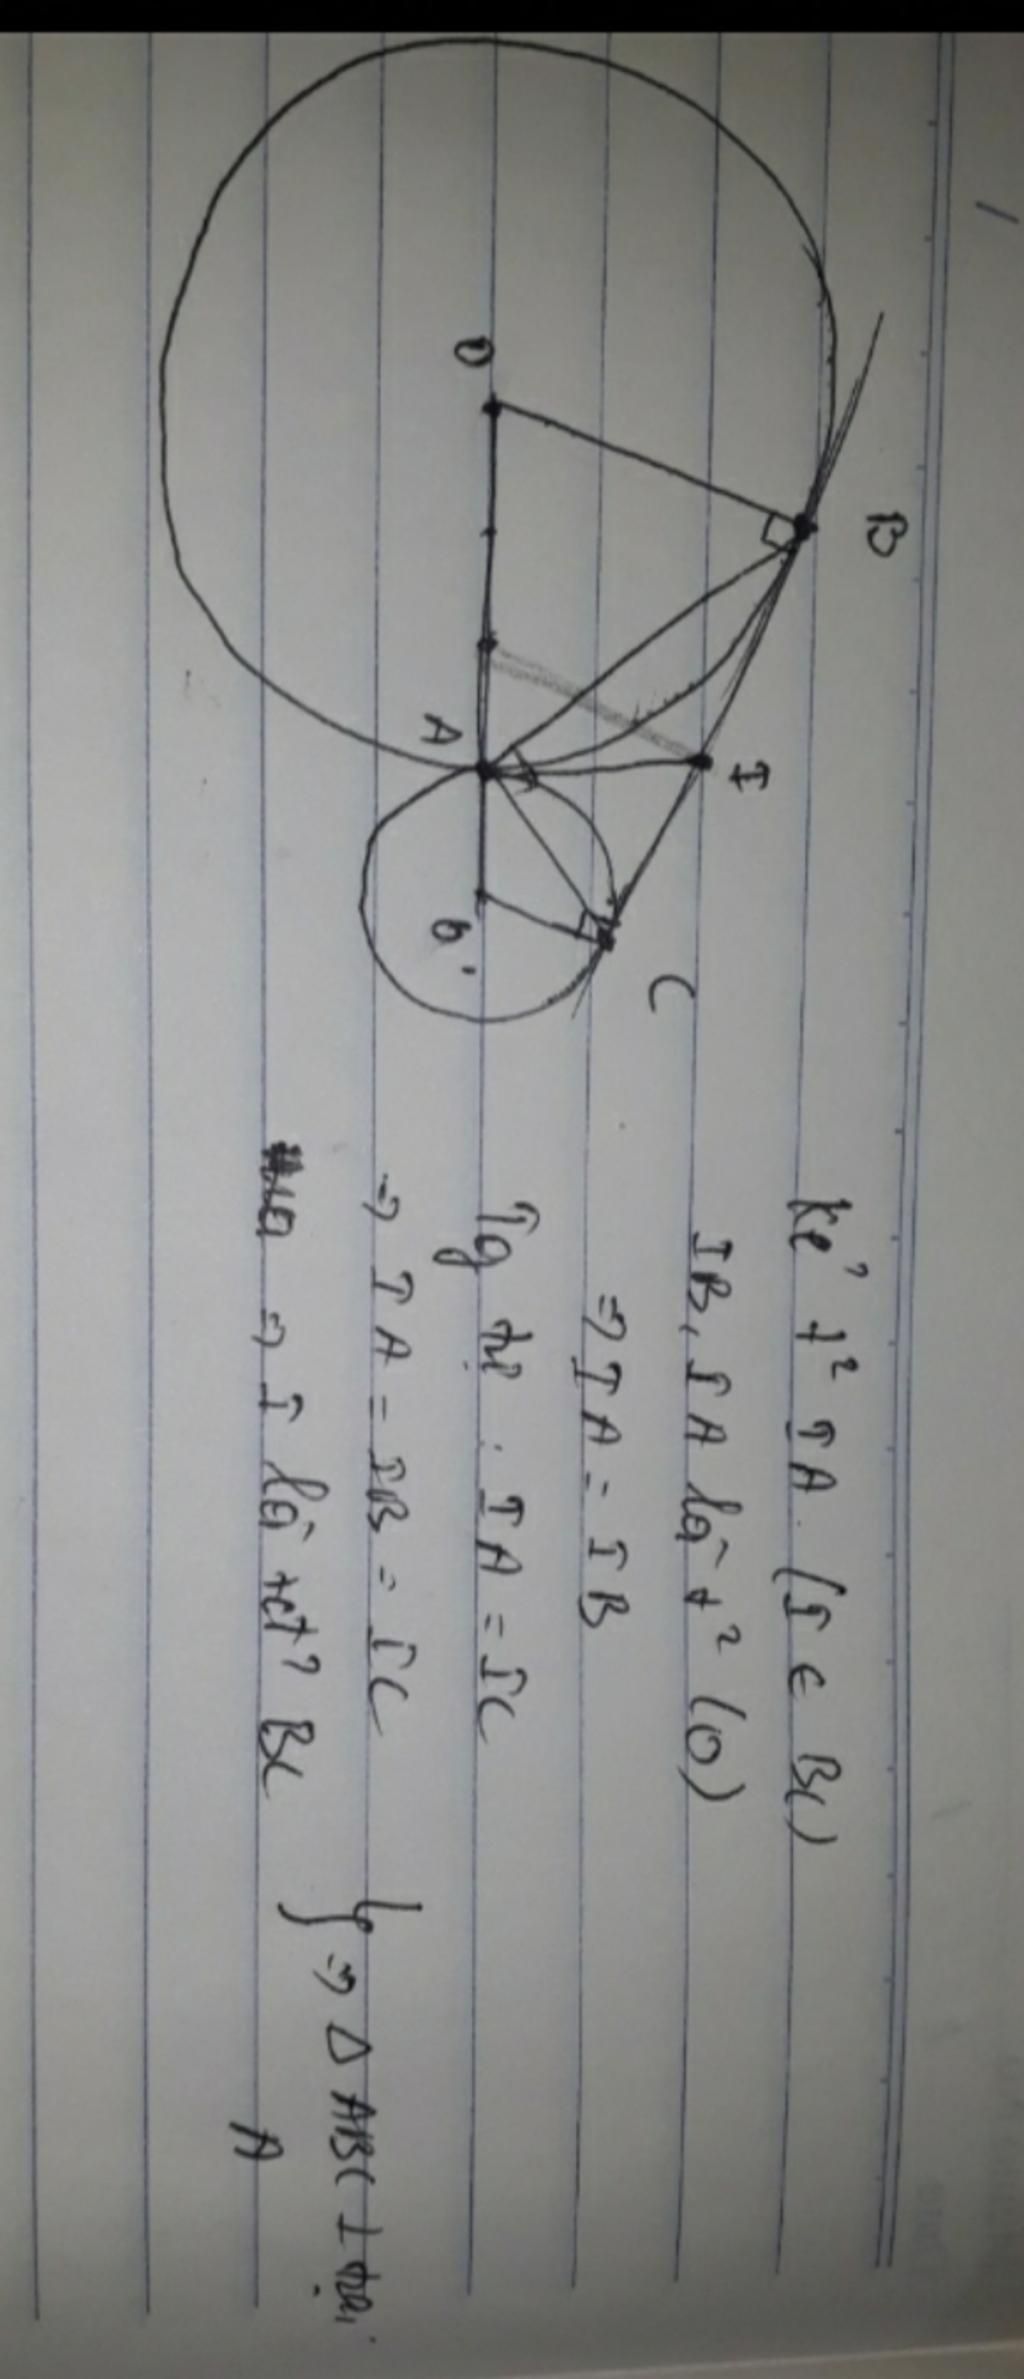 B
I
C
O
A
O'
Kẻ t² IA. (I ∈ BC)
IB, IA là t² (O)
=> IA = IB
Tg tự : IA = IC
=> IA = IB = IC
=> I là tđ? BC
} => Δ ABC ⊥ tại
A